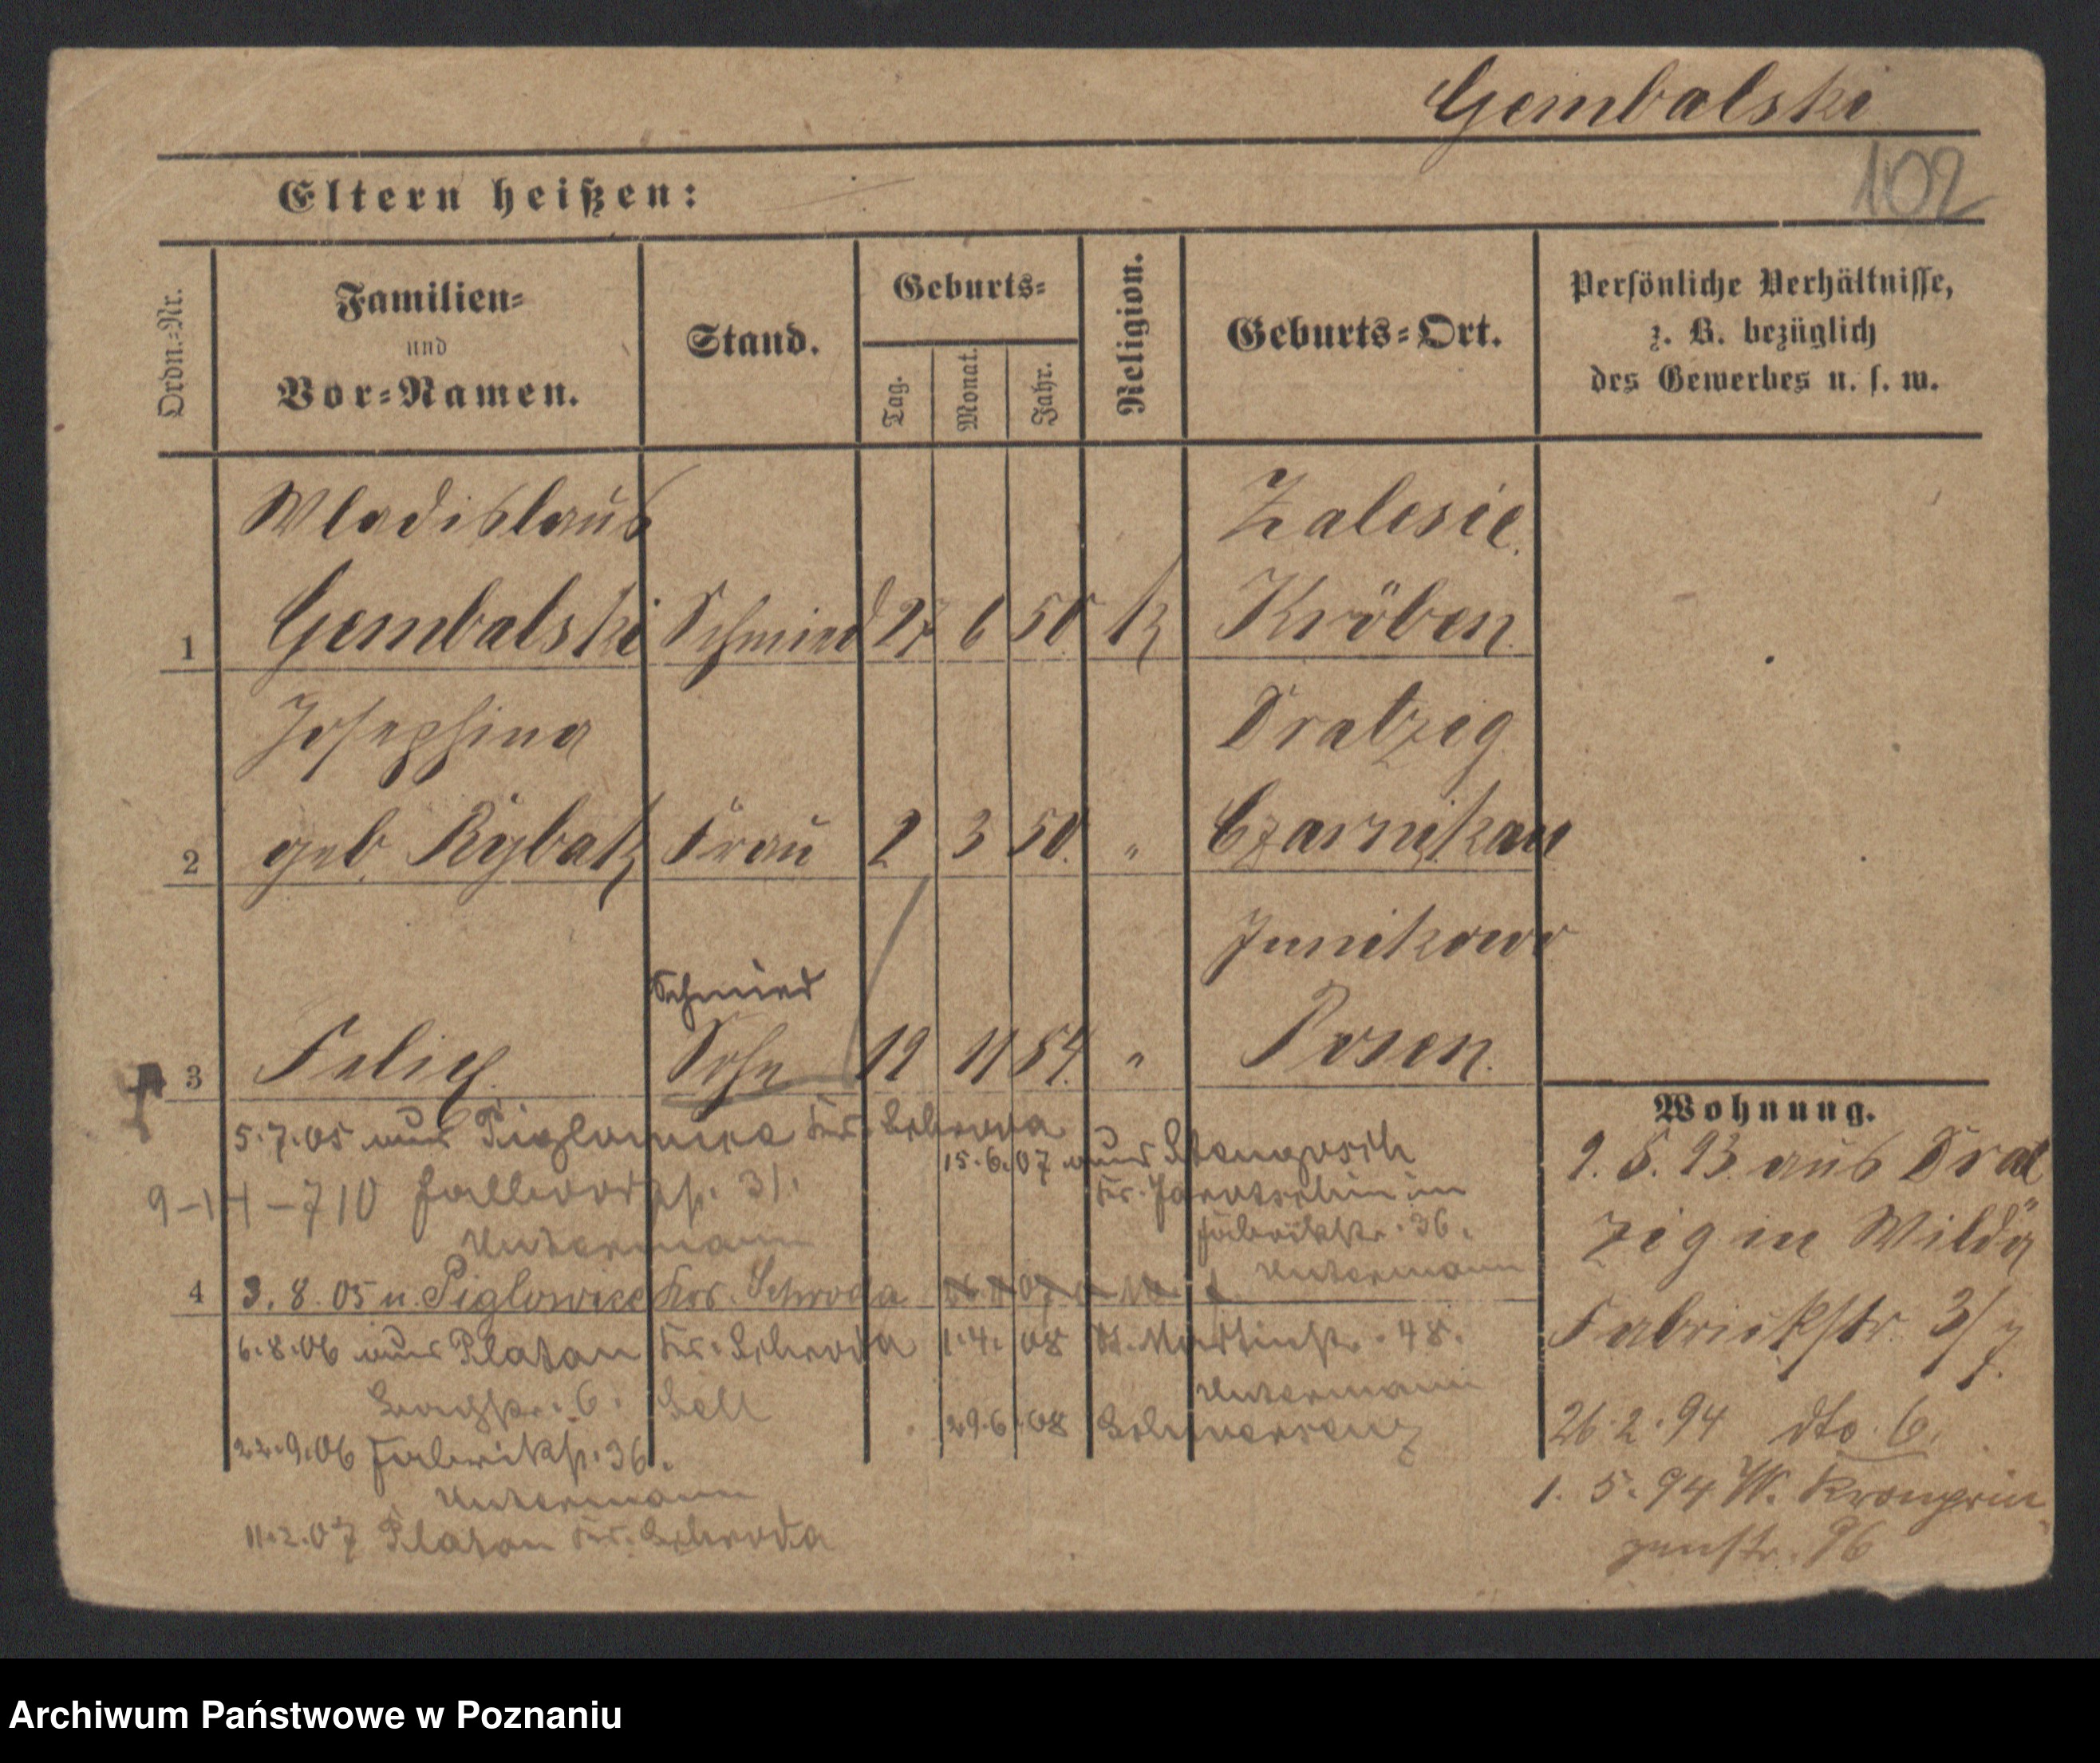 Gembalski
102
Eltern heißen:
Ordn.=Nr.
Familien=
und
Vor=Namen.
Stand.
Geburts=
Tag.
Monat.
Jahr.
Religion.
Geburts=Ort.
Persönliche Verhältnisse,
z. B. bezüglich
des Gewerbes u. s. w.
Wladislaus Zalesie
1 Gembalski Schmied 27 6 50 K Kröben
Josephina Dratzig
2 geb. Rybak Frau 2 3 50. " Czarnikau
Junikowo
Schmied
3 Felix Sohn 19 11 "  Posen.
Wohnung.
5.7.05 aus Piglowice Kr. Schroda
15.6.07 aus
Kr. Jarotschin in
Fabrikstr. 36.
Untermann
str. 31.
Untermann
4 3. 8. 05 n. Piglowice Kr. Schroda
6.8.06 aus Platan Kr. Schroda 1.4. 08 St. Martinstr. 48.
6. Untermann
29.6.08 Schwersenz
22.9.06 Fabrikstr. 36.
Untermann
11.2.07 Platan Kr. Schroda
aus Drat
zig in Wilda
Fabrickstr. 3/7.
26.2.94 dto. 6.
1. 5. 94 W. Kronprin
zenstr. 96
Archiwum Państwowe w Poznaniu